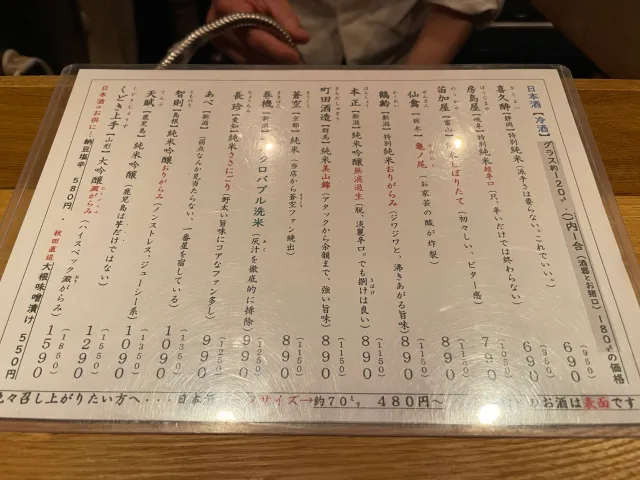 日本酒【冷酒】グラス約120㎖ ( )内一合(酒器とお猪口)180㎖の価格
喜久酔【静岡】特別純米(派手さは要らない。これでいい。) 690 (950)
房島屋【岐阜】特別純米雄辛口(只、辛いだけでは終わらない) 690 (950)
苗加屋【富山】純米しぼりたて(初々しい、ビター感) 790 (1050)
仙禽【栃木】亀ノ尾(お家芸の酸が炸裂) 890 (1150)
鶴齢【新潟】特別純米おりがらみ(ジワジワと、沸きあがる旨味) 890 (1150)
本正【新潟】純米吟醸無濾過生(脱、淡麗辛口。でも捌けは良い) 890 (1150)
町田酒造【群馬】純米美山錦(アタックから余韻まで、強い旨味) 890 (1150)
蒼空【京都】純米(当店から蒼空ファン続出) 890 (1150)
巻機【新潟】クロバプル洗米(灰汁を徹底的に排除) 990 (1250)
長珍【愛知】純米ささにごり(野太い旨味にコアなファン多し)
あべ【新潟】(弱点なんか見当たらない、一番星を宿している) 990 (1250)
智則【島根】純米吟醸おりがらみ(ノンストレス、ジューシー系) 1090 (1350)
天賦【鹿児島】純米吟醸(鹿児島は芋だけではない) 1090 (1350)
くどき上手【山形】大吟醸澱がらみ(ハイスペック澱がらみ) 1290
1590 (1850)
日本酒のお供に!納豆塩辛 580円、秋田直送大根味噌漬け 550円
々召し上がりたい方へ・・・日本酒 サイズ→約70㍉㍑ 480円〜 のお酒は表面です